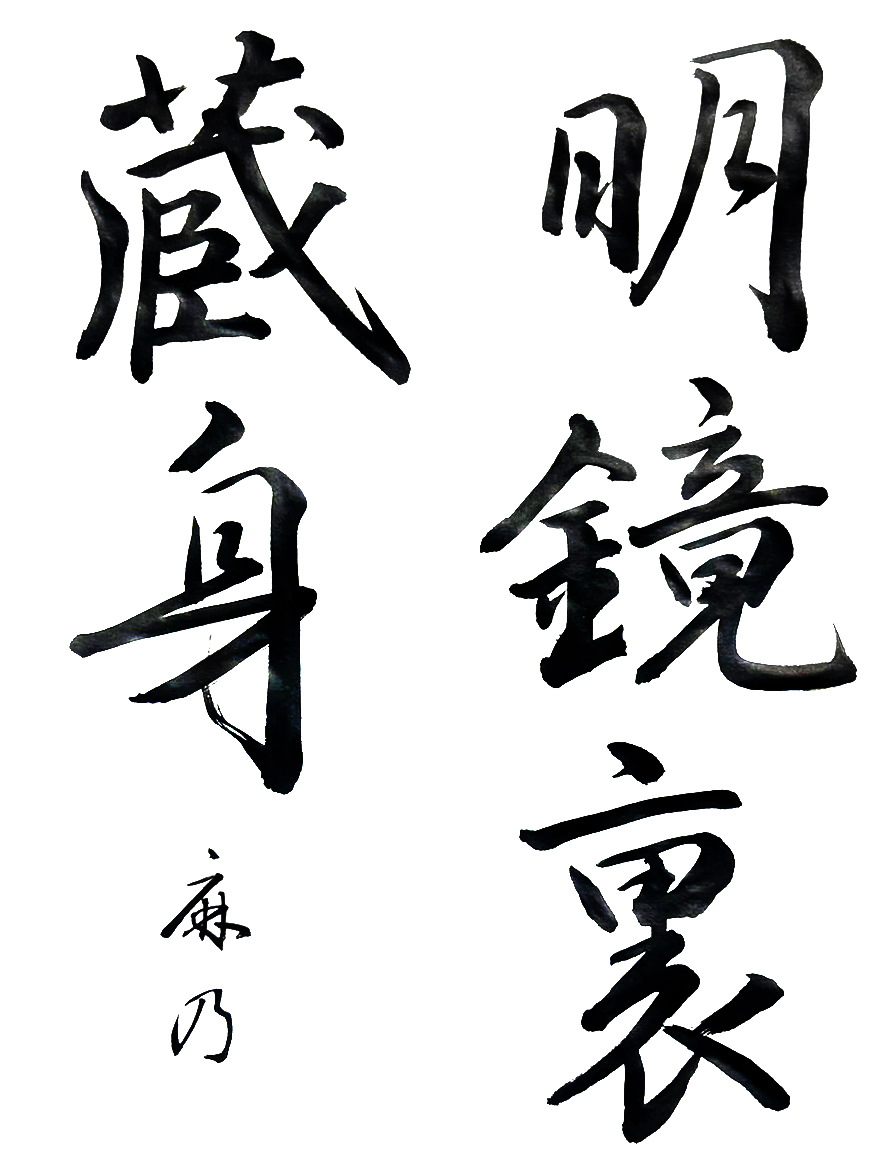 明鏡裏
蔵身
麻乃